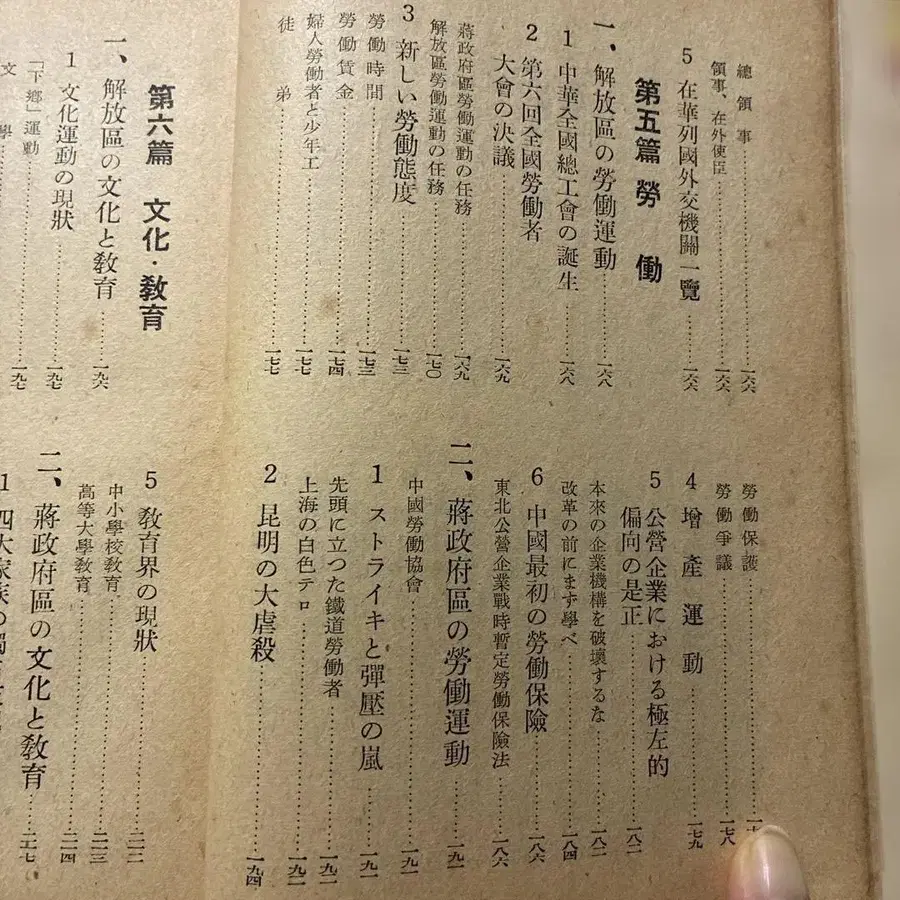 總領事……一六六
領事、在外使臣……一六六
5 在華列國外交機關一覽……一六六
第五篇 勞働
一、解放區の勞働運動……一六八
1 中華全國總工會の誕生……一六八
2 第六回全國勞働者
大會の決議……一六九
蔣政府區勞働運動の任務……一六九
解放區勞働運動の任務……一七〇
3 新しい勞働態度……一七三
勞働時間……一七三
勞働賃金……一七四
婦人勞働者と少年工……一七七
徒弟……一七七
勞働保護……
勞働爭議……一七八
4 增產運動……一七九
5 公營企業における極左的
偏向の是正……一八二
本來の企業機構を破壞するな……一八二
改革の前にまず學べ……一八四
6 中國最初の勞働保險……一八六
東北公營企業戰時暫定勞働保險法……一八六
二、蔣政府區の勞働運動……一九一
中國勞働協會……一九一
1 ストライキと彈壓の嵐……一九一
先頭に立つた鐵道勞働者……一九二
上海の白色テロ……一九二
2 昆明の大虐殺……一九四
第六篇 文化・敎育
一、解放區の文化と敎育……一九六
1 文化運動の現狀……一九七
「下鄕」運動……一九七
文學……
5 敎育界の現狀……二一二
中小學校敎育……二一三
高等大學敎育……二一四
二、蔣政府區の文化と敎育……二一七
1 四大家族の